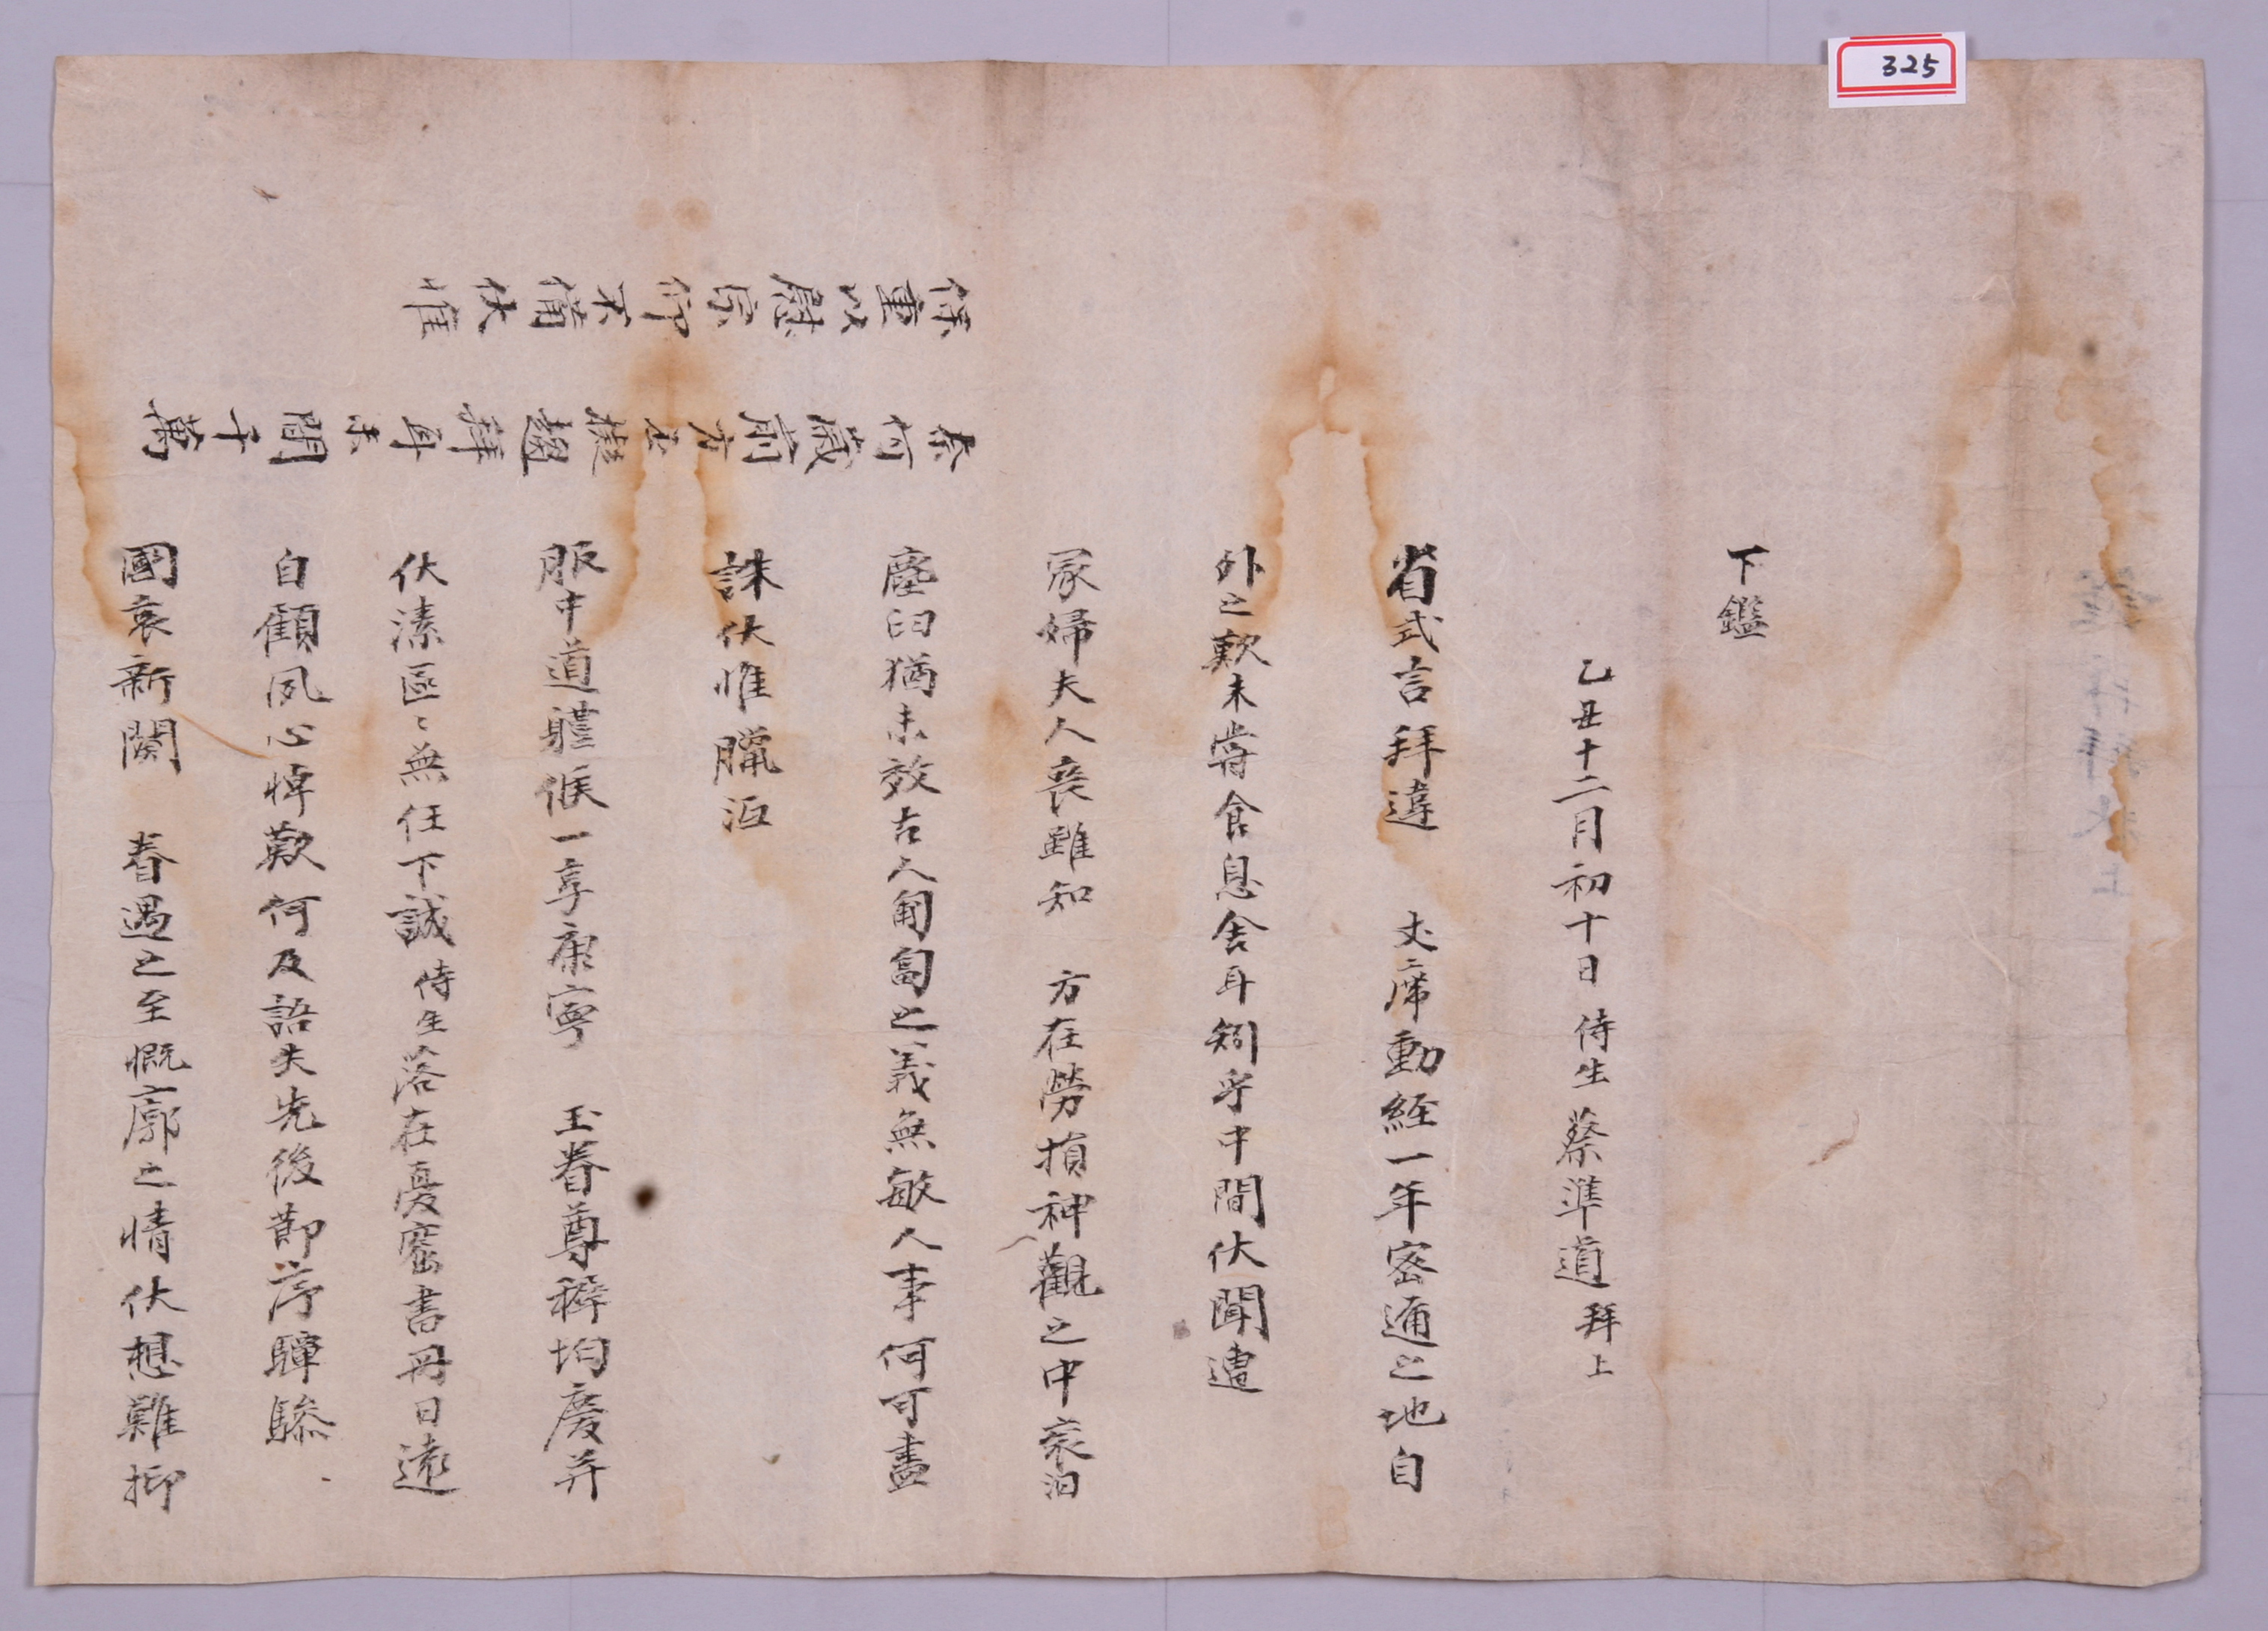 325
省式言拜違 丈席動經一年密邇之地自
外之歎未嘗食息舍耳矧乎中間伏聞遭
冢婦夫人喪雖知 方在勞損神觀之中哀汩
塵臼猶未效古人匍匐之義無敏人事何可盡
誅伏惟臘沍
服中道軆候一享康寧 玉眷尊穉均慶并
伏溸區〻無任下誠侍生落在憂窟書冊日遠
自顧夙心悼歎何及語失先後節序驔驂
國哀新闋 眷遇之至慨廓之情伏想難抑
柰何歲前方擬趨拜耳未間千萬
保重以慰崇仰不備伏惟
下鑑
乙丑十二月初十日 侍生 蔡準道 拜上